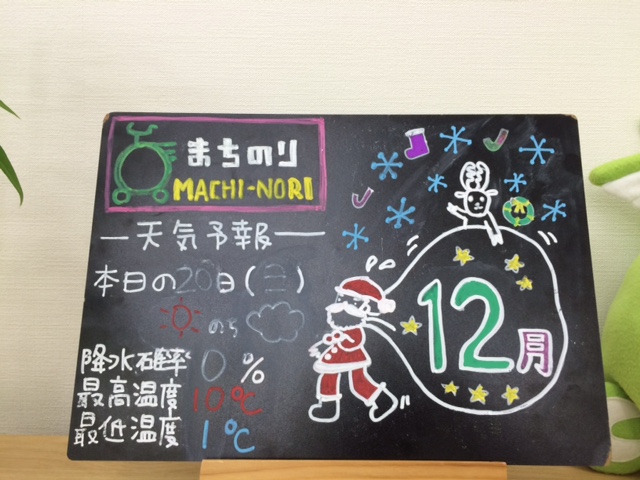 まちのり
MACHI-NORI
天気予報
本日の20日( )
のち
降水確率 0 %
最高温度 10℃
最低温度 1℃
12月